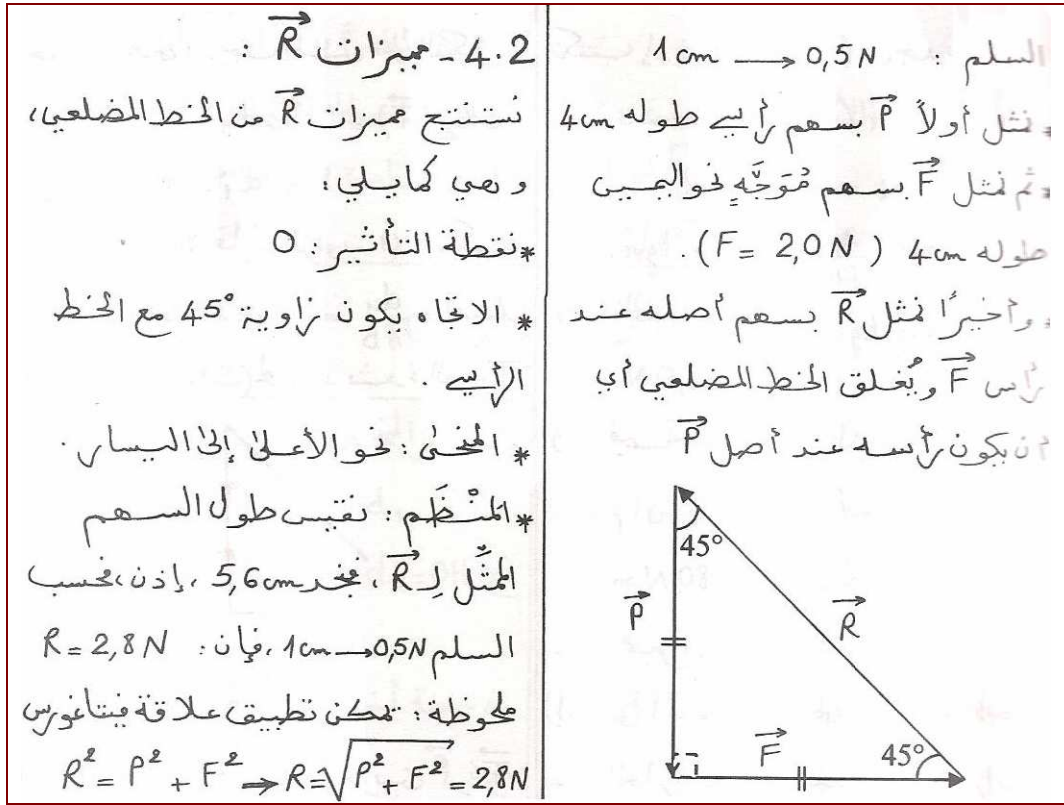 السلم : 1 cm → 0,5 N
نمثل أولاً P بسهم رأسي طوله 4 cm
ثم نمثل F بسهم مُوَجَّهٍ نحو اليمين
طوله 4 cm (F = 2,0 N).
وأخيرًا نمثل R بسهم أصله عند
رأس F ويُغلق الخط المضلعي أي
أن يكون رأسه عند أصل P
45°
P
R
F
45°
4.2 - مميزات R :
نستنتج مميزات R من الخط المضلعي،
وهي كما يلي:
*نقطة التأثير: O
* الاتجاه يكون زاوية 45° مع الخط
الرأسي .
* المنحى: نحو الأعلى إلى اليسار.
*المَنْظَم: نقيس طول السهم
الممثِّل لِ R، فنجد 5,6 cm، إذن، فحسب
السلم 1 cm → 0,5 N، فإن: R = 2,8 N
ملحوظة: تمكن تطبيق علاقة فيتاغورس
R² = P² + F² → R = √P² + F² = 2,8 N